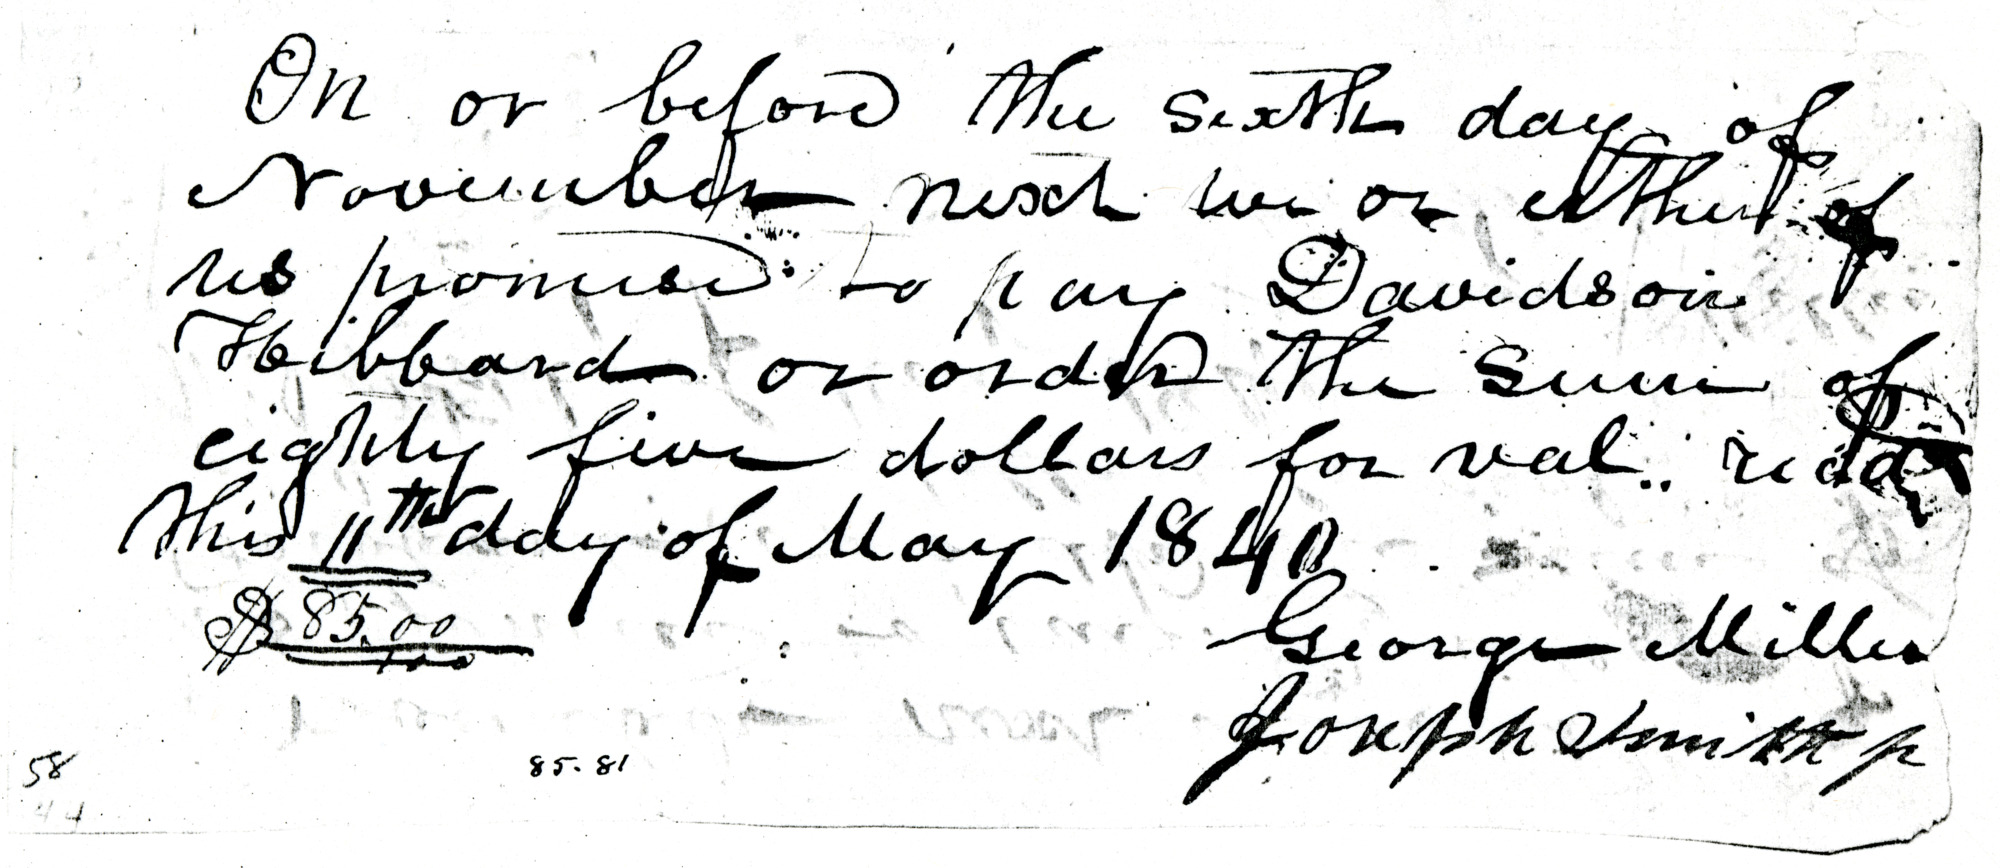 On or before the sixth day of
November next we or either of
us promise to pay Davidson
Hibbard or order the sum of
eighty five dollars for val.. recd
this 11th day of May 1840
$ 85.00/100
George Miller
Joseph Smith jr
58
85.81
44